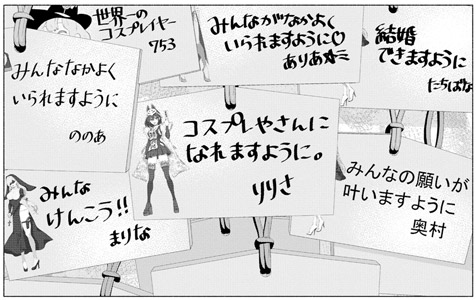 世界一の
コスプレイヤー
753
みんながなかよく
いられますように♡
ありあ
結婚
できますように
たちばな
みんななかよく
いられますように
ののあ
コスプレやさんに
なれますように。
りりさ
みんなの願いが
叶いますように
奥村
みんな
けんこう!!
まりな